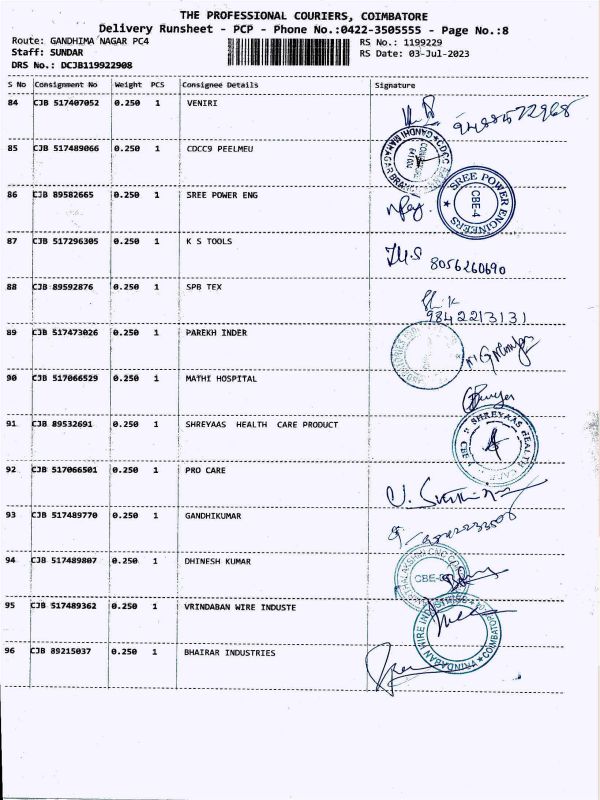 THE PROFESSIONAL COURIERS, COIMBATORE
Delivery Runsheet - PCP - Phone No.:0422-3505555 - Page No.:8
Route: GANDHIMA NAGAR PC4 RS No.: 1199229
Staff: SUNDAR RS Date: 03-Jul-2023
DRS No.: DCJB119922908
S No Consignment No Weight PCS Consignee Details Signature
84 CJB 517407052 0.250 1 VENIRI
85 CJB 517489066 0.250 1 CDCC9 PEELMEU
86 CJB 89582665 0.250 1 SREE POWER ENG
SREE POWER ENGINEERS CBE-4
87 CJB 517296305 0.250 1 K S TOOLS
8056260690
88 CJB 89592876 0.250 1 SPB TEX
9842213131
89 CJB 517473026 0.250 1 PAREKH INDER
90 CJB 517066529 0.250 1 MATHI HOSPITAL
91 CJB 89532691 0.250 1 SHREYAAS HEALTH CARE PRODUCT
SHREYAAS HEALTH CARE
92 CJB 517066501 0.250 1 PRO CARE
93 CJB 517489770 0.250 1 GANDHIKUMAR
94 CJB 517489807 0.250 1 DHINESH KUMAR
95 CJB 517489362 0.250 1 VRINDABAN WIRE INDUSTE
96 CJB 89215037 0.250 1 BHAIRAR INDUSTRIES